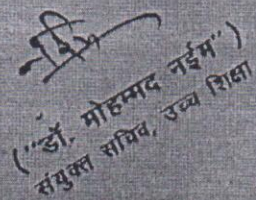 ("डॉ. मोहम्मद नईम")
संयुक्त सचिव, उच्च शिक्षा